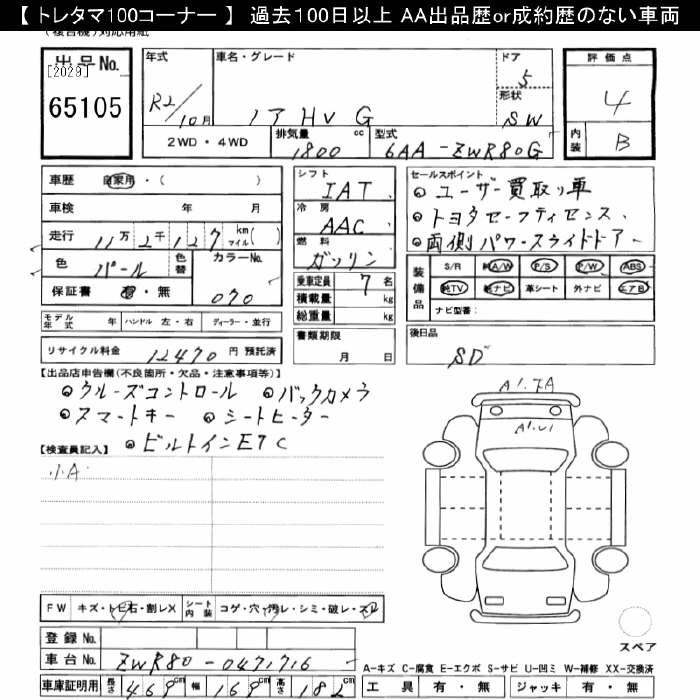 【 トレタマ100コーナー 】 過去100日以上 AA出品歴or成約歴のない車両
(複合機)対応用紙
出品No. [2029]
65105
年式 R2/10月
車名・グレード ノア HV G
ドア 5
形状 SW
評価点 4
内装 B
2WD・4WD
排気量 1800 cc
型式 6AA-ZWR80G
車歴 自家用・( )
車検 年 月
走行 11万2千127 km マイル( )
色 パール 色替 カラーNo. 070
保証書 有・無
モデル年式 年 ハンドル 左・右 ディーラー・並行
リサイクル料金 12470 円 預託済
シフト IAT
冷房 AAC
燃料 ガソリン
乗車定員 7 名
積載量 kg
総重量 kg
書類期限 月 日
セールスポイント
◎ユーザー買取り車
◎トヨタセーフティセンス、
◎両側パワースライドドアー
装備品 S/R 純A/W P/S P/W ABS
純TV 純ナビ 革シート 外ナビ エアB
ナビ型番:
後日品
SD
【出品店申告欄(不良箇所・欠品・注意事項等)】
◎クルーズコントロール ◎バックカメラ
◎スマートキー ◎シートヒーター
◎ビルトインETC
【検査員記入】
小A
A1.
A1.U1
FW キズ・トビ石・割レX シート内装 コゲ・穴・汚レ・シミ・破レ・スレ
登録No.
車台No. ZWR80-0471716
車庫証明用 長さ 469cm 幅 169cm 高さ 182cm
スペア
A-キズ C-腐食 E-エクボ S-サビ U-凹ミ W-補修 XX-交換済
工具 有・無 ジャッキ 有・無